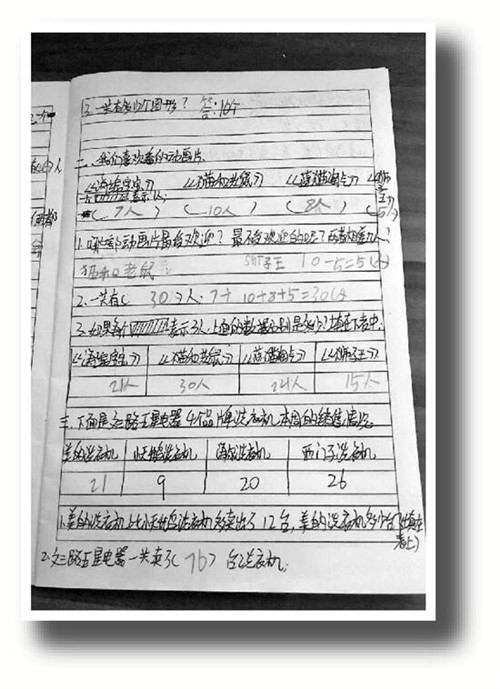 3.一共有多少个图形? 答:16个
二、我们喜欢看的动画片
《海绵宝宝》 《猫和老鼠》 《蓝猫淘气》 《狮子王》
(7人) (10人) (8人) (5人)
1.哪部动画片最受欢迎? 最不受欢迎的呢?
猫和老鼠 狮子王 10-5=5(人)
2.一共有(30)人.7+10+8+5=30(人)
3.如果每个 表示3人,上面的数据分别是多少?填在下表中.
《海绵宝宝》 《猫和老鼠》 《蓝猫淘气》 《狮子王》
21人 30人 24人 15人
三、下面是文三路五星电器4个品牌洗衣机本周的销售情况.
美的洗衣机 小天鹅洗衣机 海尔洗衣机 西门子洗衣机
21 9 20 26
1.美的洗衣机比小天鹅洗衣机多卖出了12台,美的洗衣机多少台?(填在表上)
2.文三路五星电器一共卖了(76)台洗衣机.